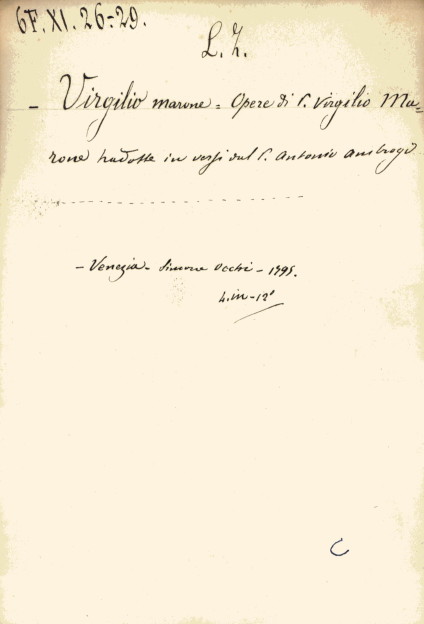 6F. XI. 26-29.
L. Z.
- Virgilio marone = Opere di P. Virgilio Ma=
rone tradotte in versi dal P. Antonio Ambrogi
- Venezia - Simone Occhi - 1795.
4. in - 12°
C